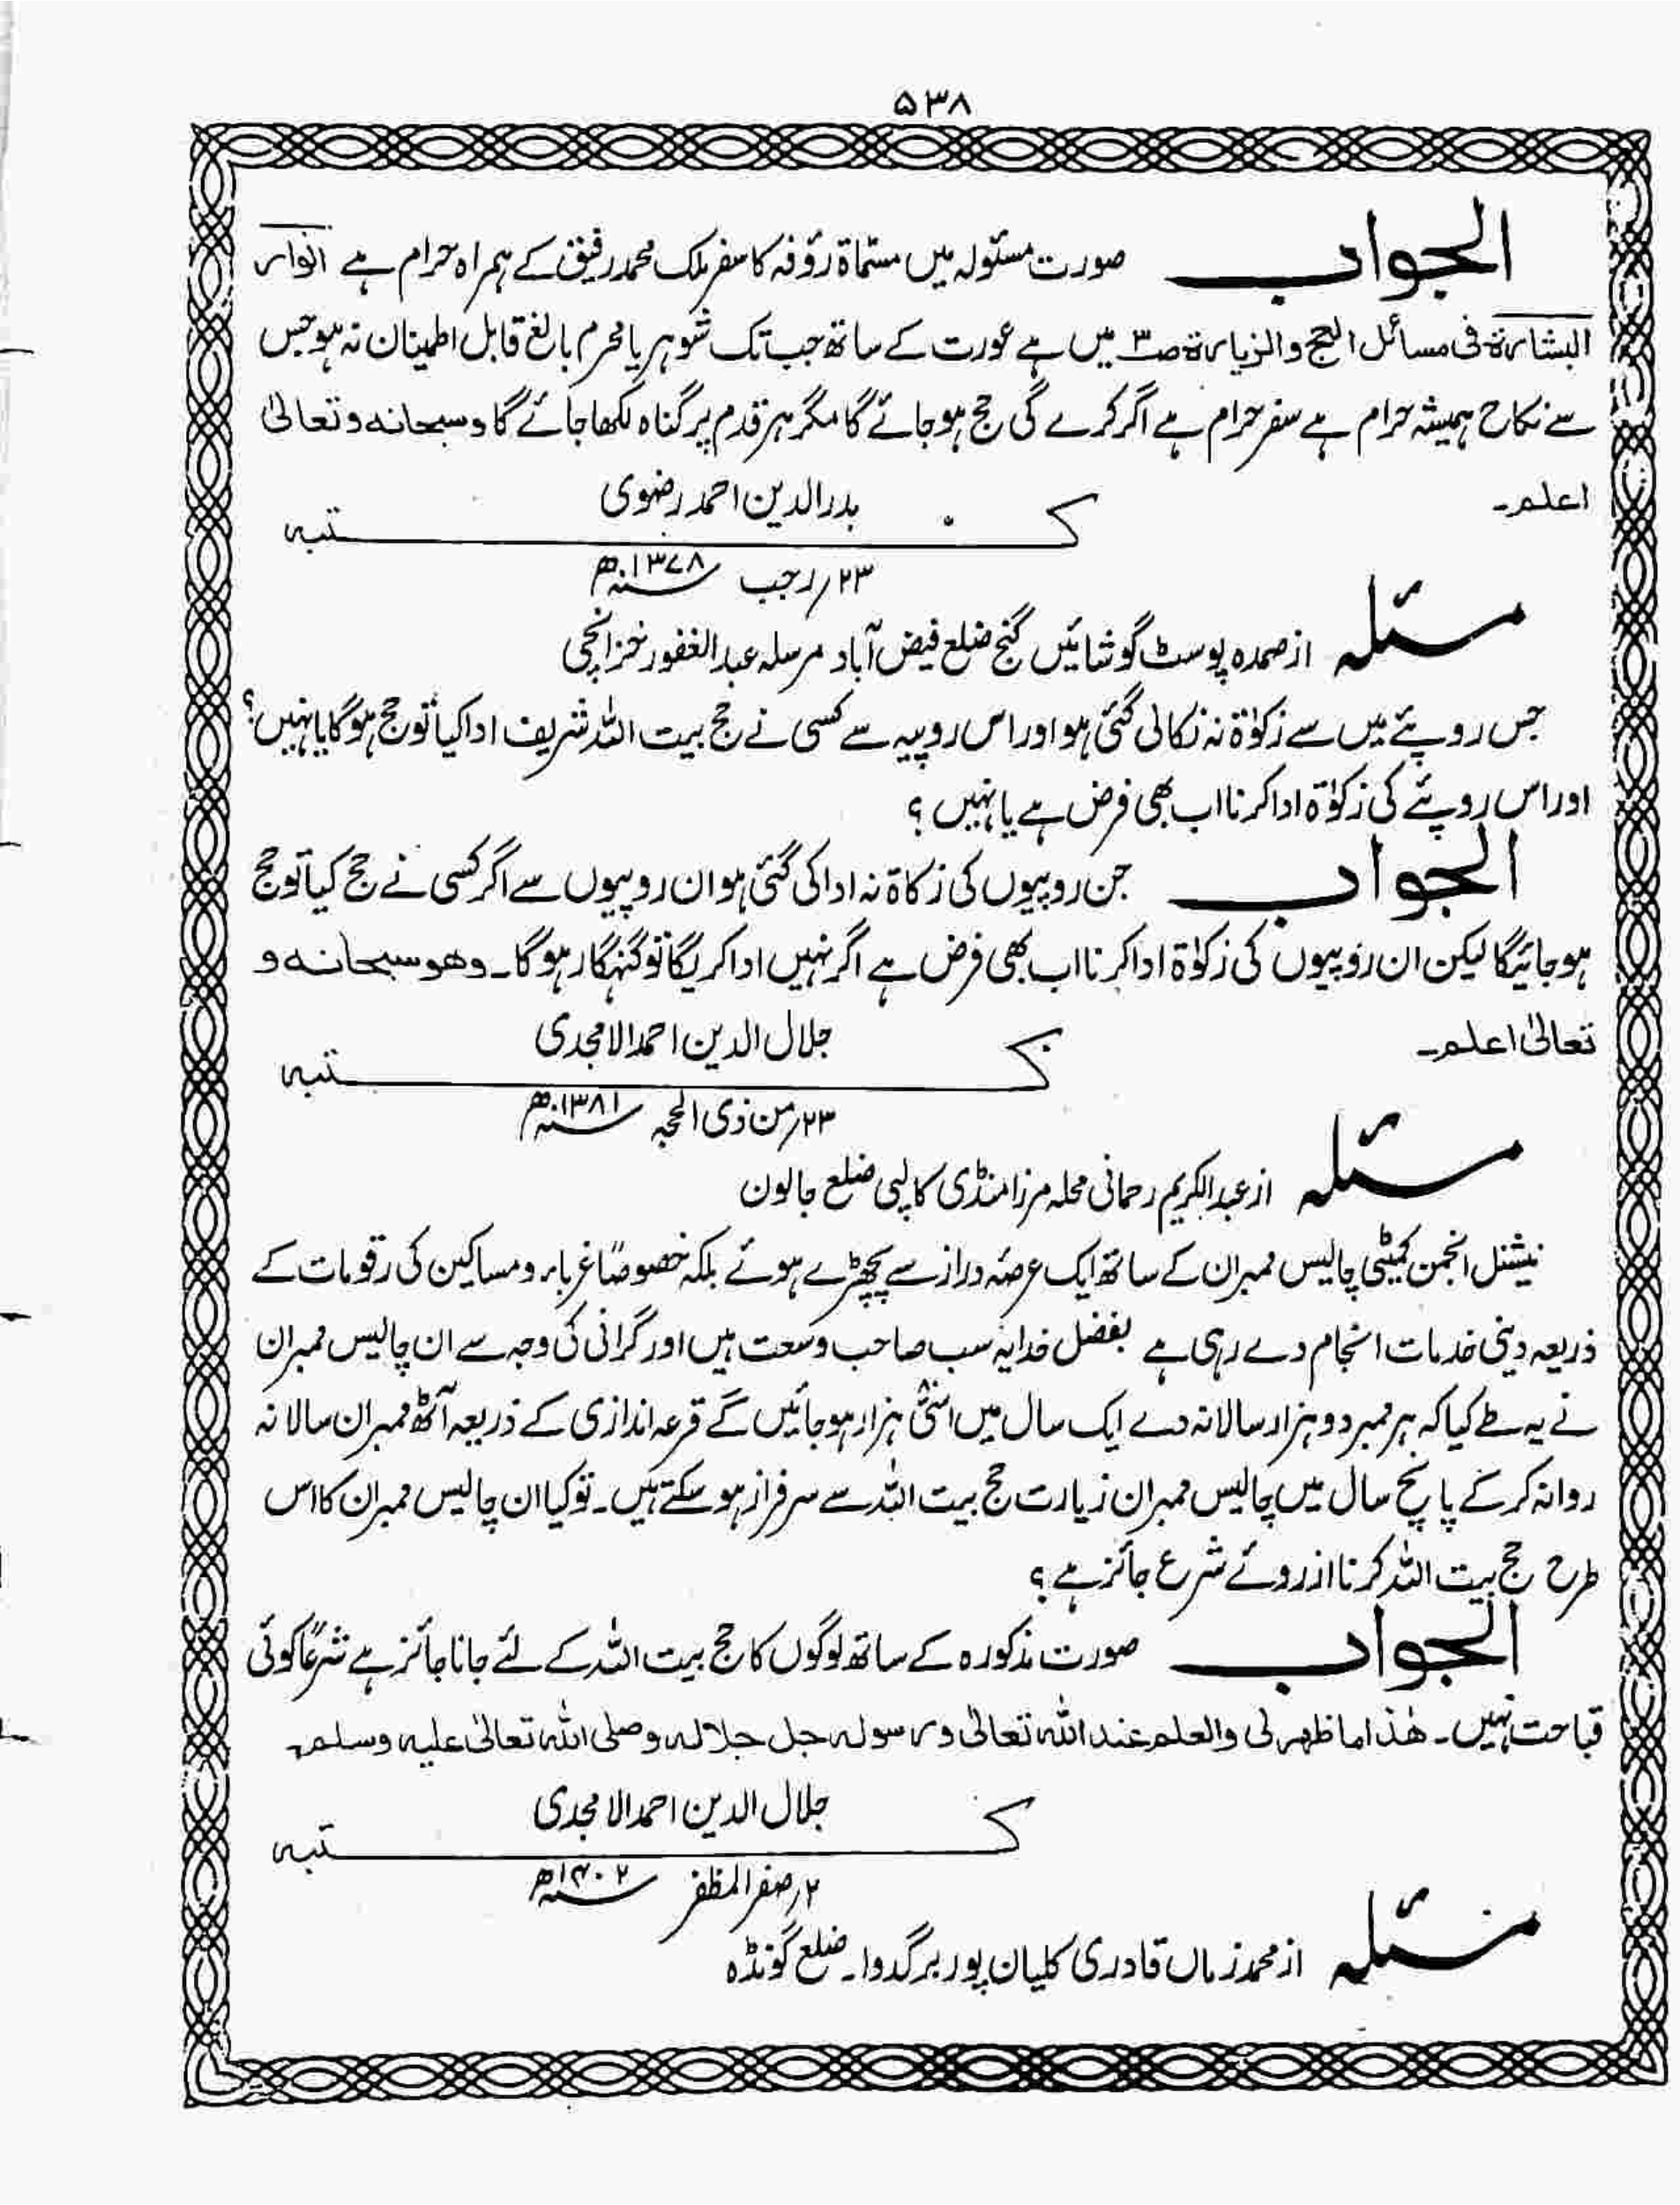 ۵۳۸
الجواب صورت مسئولہ میں مسماۃ رؤفہ کا سفر ملک محمد رفیق کے ہمراہ حرام ہے انوار
البشارۃ فی مسائل الحج والزیارۃ ص۳ میں ہے عورت کے ساتھ جب تک شوہر یا محرم بالغ قابل اطمینان نہ ہو جس
سے نکاح ہمیشہ حرام ہے سفر حرام ہے اگر کرے گی حج ہوجائے گا مگر ہر قدم پر گناہ لکھا جائے گا وسبحانہ وتعالیٰ
اعلم۔
بدرالدین احمد رضوی
کتبہ
۲۳؍رجب ۱۳۷۸ھ
مسئلہ از صمدہ پوسٹ گوشائیں گنج ضلع فیض آباد مرسلہ عبدالغفور خزانچی
جس روپئے میں سے زکوٰۃ نہ نکالی گئی ہو اور اس روپیہ سے کسی نے حج بیت اللہ شریف ادا کیا تو حج ہوگا یا نہیں؟
اور اس روپئے کی زکوٰۃ ادا کرنا اب بھی فرض ہے یا نہیں ؟
الجواب جن روپیوں کی زکاۃ نہ ادا کی گئی ہو ان روپیوں سے اگر کسی نے حج کیا تو حج
ہوجائیگا لیکن ان روپیوں کی زکوٰۃ ادا کرنا اب بھی فرض ہے اگر نہیں ادا کریگا تو گنہگار ہوگا۔ وھو سبحانہ و
تعالیٰ اعلم۔
جلال الدین احمد الامجدی
کتبہ
۲۳؍من ذی الحجہ ۱۳۸۱ھ
مسئلہ از عبدالکریم رحمانی محلہ مرزا منڈی کالپی ضلع جالون
نیشنل انجمن کمیٹی چالیس ممبران کے ساتھ ایک عرصۂ دراز سے پچھڑے ہوئے بلکہ خصوصاً غرباء ومساکین کی رقومات کے
ذریعہ دینی خدمات انجام دے رہی ہے بفضل خدا یہ سب صاحب وسعت ہیں اور گرانی کی وجہ سے ان چالیس ممبران
نے یہ طے کیا کہ ہر ممبر دو ہزار سالانہ دے ایک سال میں اسّی ہزار ہوجائیں گے قرعہ اندازی کے ذریعہ آٹھ ممبران سالانہ
روانہ کرکے پانچ سال میں چالیس ممبران زیارت حج بیت اللہ سے سرفراز ہوسکتے ہیں۔ تو کیا ان چالیس ممبران کا اس
طرح حج بیت اللہ کرنا ازروئے شرع جائز ہے ؟
الجواب صورت مذکورہ کے ساتھ لوگوں کا حج بیت اللہ کے لئے جانا جائز ہے شرعاً کوئی
قباحت نہیں۔ ھٰذا ما ظھر لی والعلم عند اللہ تعالیٰ ورسولہ جل جلالہ وصلی اللہ تعالیٰ علیہ وسلم۔
جلال الدین احمد الامجدی
کتبہ
۲؍صفر المظفر ۱۴۰۲ھ
مسئلہ از محمد زماں قادری کلیان پور برگدوا۔ ضلع گونڈہ